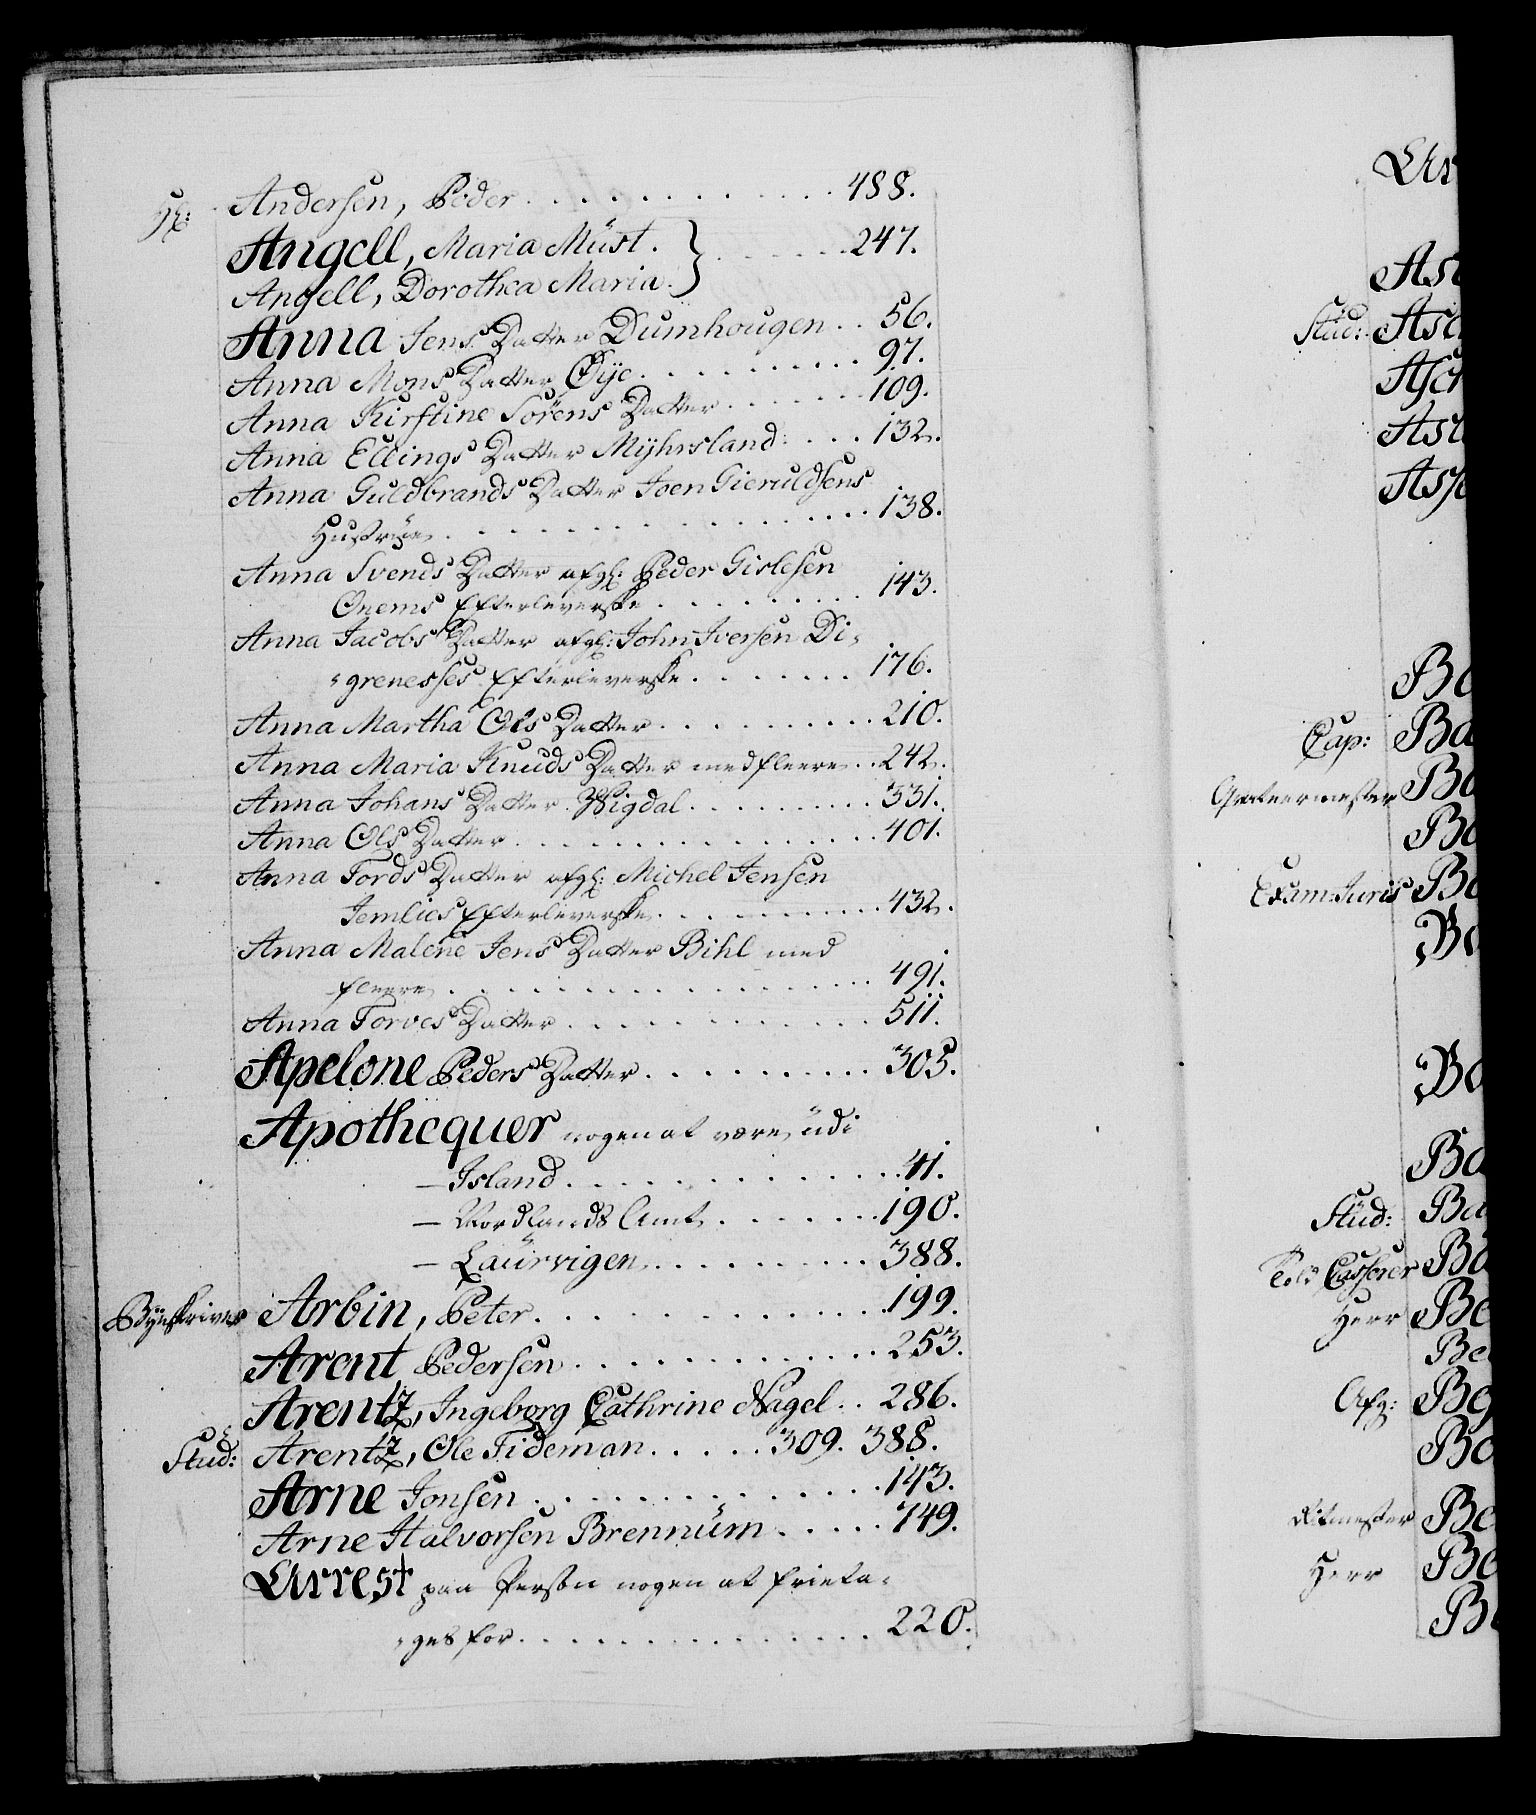 Hr: Andersen, Peder . . . . . . . . . . . . 488.
Angell, Maria Müst. } . . . . . 247.
Angell, Dorothea Maria.
Anna Jens Datter Dumhougen . . 56.
Anna Mons Datter Øÿe . . . . . . . . . . 97.
Anna Kirstine Sörens Datter . . . . . . . 109.
Anna Ellings Datter Mÿhrsland . . . . 132.
Anna Guldbrands Datter Joen Gieruldsens
Hustrue . . . . . . . . . . . . . . . . 138.
Anna Svends Datter afg: Peder Gislesen
Onems Efterleverske . . . . . . . . . 143.
Anna Jacobs Datter afg: John Iversen Di-
-grenesses Efterleverske . . . . . . . 176.
Anna Martha Ols Datter . . . . . . . . . . 210.
Anna Maria Knuds Datter med fleere . . 242.
Anna Johans Datter Wigdal . . . . . . . . . 331.
Anna Ols Datter . . . . . . . . . . . . . . . 401.
Anna Tords Datter afg: Michel Jensen
Jemlies Efterleverske . . . . . . . . . . 432.
Anna Malene Jens Datter Bihl med
fleere . . . . . . . . . . . . . . . . . 491.
Anna Torves Datter . . . . . . . . . . . . 511.
Apelone Peders Datter . . . . . . . . . . 305.
Apothequer nogen at være üdi
– Island . . . . . . . . . . . . . 41.
– Nordlands Amt . . . . . . . 190.
– Laürvigen . . . . . . . . . 388.
Bÿeskriver Arbin, Peter . . . . . . . . . . . . . 199.
Arent Pedersen . . . . . . . . . . . . 253.
Arentz, Ingeborg Cathrine Nagel . . 286.
Stud: Arentz, Ole Tideman . . . . . 309. 388.
Arne Jonsen . . . . . . . . . . . . . . 143.
Arne Halvorsen Brennüm . . . . . 749.
Arrest paa Person nogen at frieta-
-ges for . . . . . . . . . . . . . . . 220.
Stud:
Cap:
Qvarteermester
Exam: Juris
Stud:
Told Casserer
Herr
Afg:
Ritmester
Herr